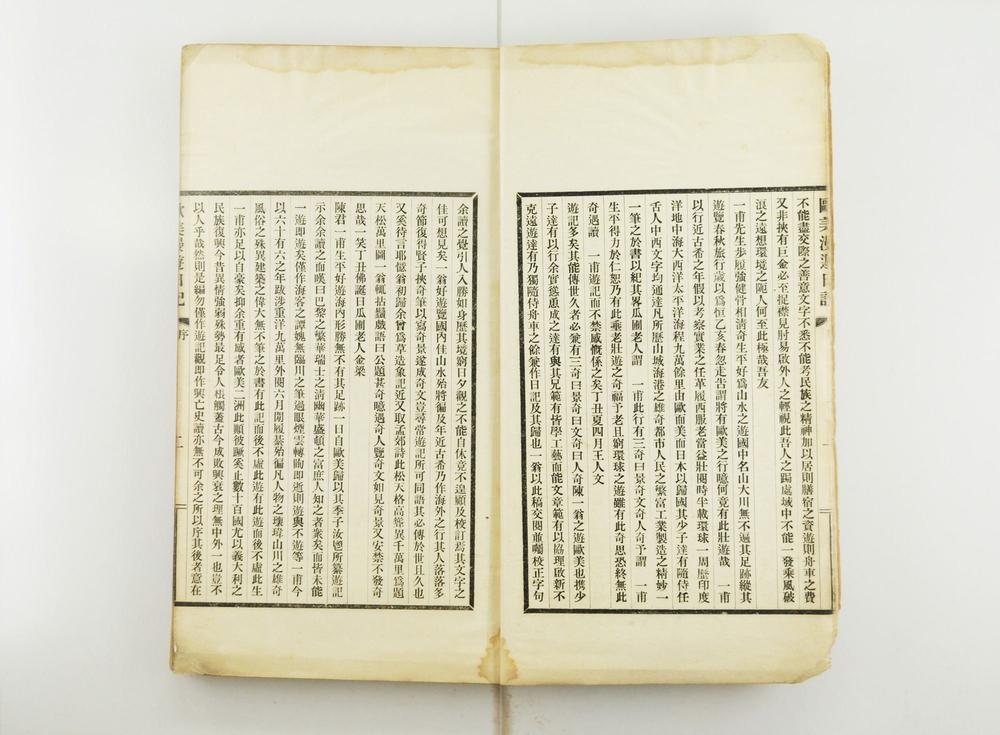 歐美漫遊日記
不能盡交際之善意文字不悉不能考民族之精神加以居則膳宿之資遊則舟車之費
又非挾有巨金必至捉襟見肘易啟外人之輕視此吾人之跼處域中不能一發乘風破
浪之遠想環境之阨人何至此極哉吾友
一甫先生步履強健骨相清奇生平好為山水之遊國中名山大川無不遍其足跡縱其
遊覽春秋旅行歲以為恒乙亥春忽走告謂將有歐美之行噫何竟有此壯遊哉 一甫
以行近古希之年假以考察實業之任革履西服老當益壯閱時半載環球一周歷印度
洋地中海大西洋太平洋海程九萬餘里由歐而美而日本以歸國其少子達有隨侍任
舌人中西文字均通達凡所歷山城海港之雄奇都市人民之繁富工業製造之精妙一
一筆之於書以紀其畧瓜圃老人謂 一甫此行有三奇曰景奇文奇人奇予謂 一甫
生平得力於仁恕乃有此垂老壯遊之奇福予老且窮環球之遊雖有此奇思恐終無此
奇遇讀 一甫遊記而不禁感慨係之矣丁丑夏四月王人文
遊記多矣其能傳世久者必兼有三奇曰景奇曰文奇曰人奇陳一翁之遊歐美也携少
子達有以行余實慫慂成之達有與其兄範有皆學工藝而能文章範有以協理啟新不
克遠遊達有乃獨隨侍舟車之餘兼作日記及其歸也一翁以此稿交閱並囑校正字句
余讀之覺引人入勝如身歷其境窮日夕觀之不能自休竟不遑顧及校訂焉其文字之
佳可想見矣一翁好遊覽國內佳山水殆將徧及年近古希乃作海外之行其人落落多
奇節復得賢子挾奇筆以寫奇景遂成奇文豈尋常遊記所可同語其必傳於世且久也
又奚待言耶憶翁初歸余曾為草造象記近又取孟郊詩此松天格高聳異千萬里為題
天松萬里圖一翁輒拈鬚戲語曰公題甚奇噫遇奇人覽奇文如見奇景又安禁不發奇
思哉一笑丁丑佛誕日瓜圃老人金梁
陳君一甫生平好遊海內形勝無不有其足跡一日自歐美歸以其季子汝所纂遊記
示余余讀之而嘆曰巴黎之繁華瑞士之清幽華盛頓之富庶人知之者衆矣而皆未能
一遊即遊矣僅作海客之譚媿無臨川之筆過眼煙雲轉眴即逝則遊與不遊等一甫今
以六十有六之年跋涉重洋九萬里外閱六月閒履綦殆徧凡人物之瓌瑋山川之雄奇
風俗之殊異建築之偉大無不筆之於書有此記而後不虛此遊有此遊而後不虛此生
一甫亦足以自豪矣抑余重有感者歐美二洲此順彼蹶奚止數十百國尤以義大利之
民族復興今昔異情強弱殊勢最足令人根觸蓋古今成敗興衰之理無中外一也豈不
以人乎哉然則是編勿僅作遊記觀即作興亡史讀亦無不可余之所以序其後者意在
歐美漫遊日記
序
二